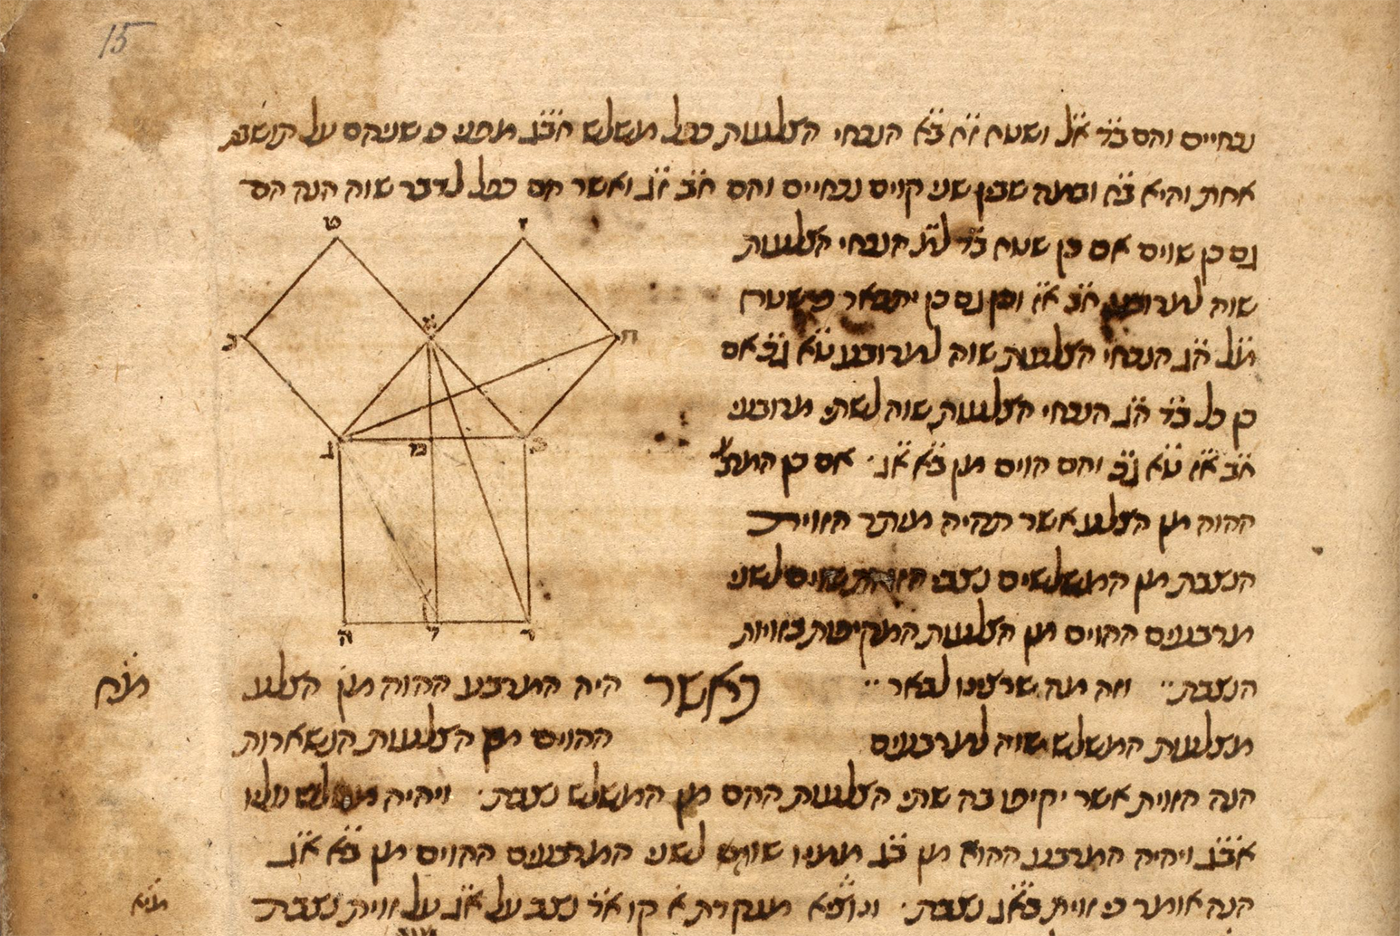 15
נכחיים והם ב̈ד א̈ל ושטח ז̈ח ב̈א הנכחי הצלעות כפל משלש ח̈ב̈ג מפני כי שניהם על תושבת
אחת והיא ב̈ח ובמה שבין שני קוים נכחיים והם ח̈ב ז̈ג ואשר הם כפל לדבר שוה הנה הם
גם כן שוים אם כן שטח ב̈ד ל̈מ הנכחי הצלעות
שוה למרובע ח̈ב א̈ז וכן גם כן יתבאר כי שטח
מ̈ל ה̈ג הנכחי הצלעות שוה למרובע ט̈א ג̈כ אם
כן כל ב̈ד ה̈ג הנכחי הצלעות שוה לשתי מרובעי
ח̈ב א̈ז ט̈א ג̈כ והם הוים מן ב̈א א̈ג · אם כן המרבע
ההוה מן הצלע אשר תהיה מיתר הזוית
הנצבת מן המשלשים נצבי שוים לשני
מרבעים ההוים מן הצלעות המקיפות בזוית
הנצבת ·· וזה מה שרצינו לבאר ·· כאשר היה המרבע ההוה מן הצלע
מצלעות המשלש שוה למרבעים ההוים מן הצלעות הנשארות
הנה הזוית אשר יקיפו בה שתי הצלעות ההם מן המשלש נצבת · ויהיה משלש עליו
א̈ב̈ג ויהיה המרבע ההוא מן ב̈ג ממנו שוה לשני המרבעים ההוים מן ב̈א א̈ג
הנה אומר כי זוית ב̈א̈ג נצבת · ונוציא מנקדת א̇ קו א̈ד נצב על א̈ג על זוית נצבת
ט
ז
א
כ
ח
ג
מ
ב
ה
ל
ד